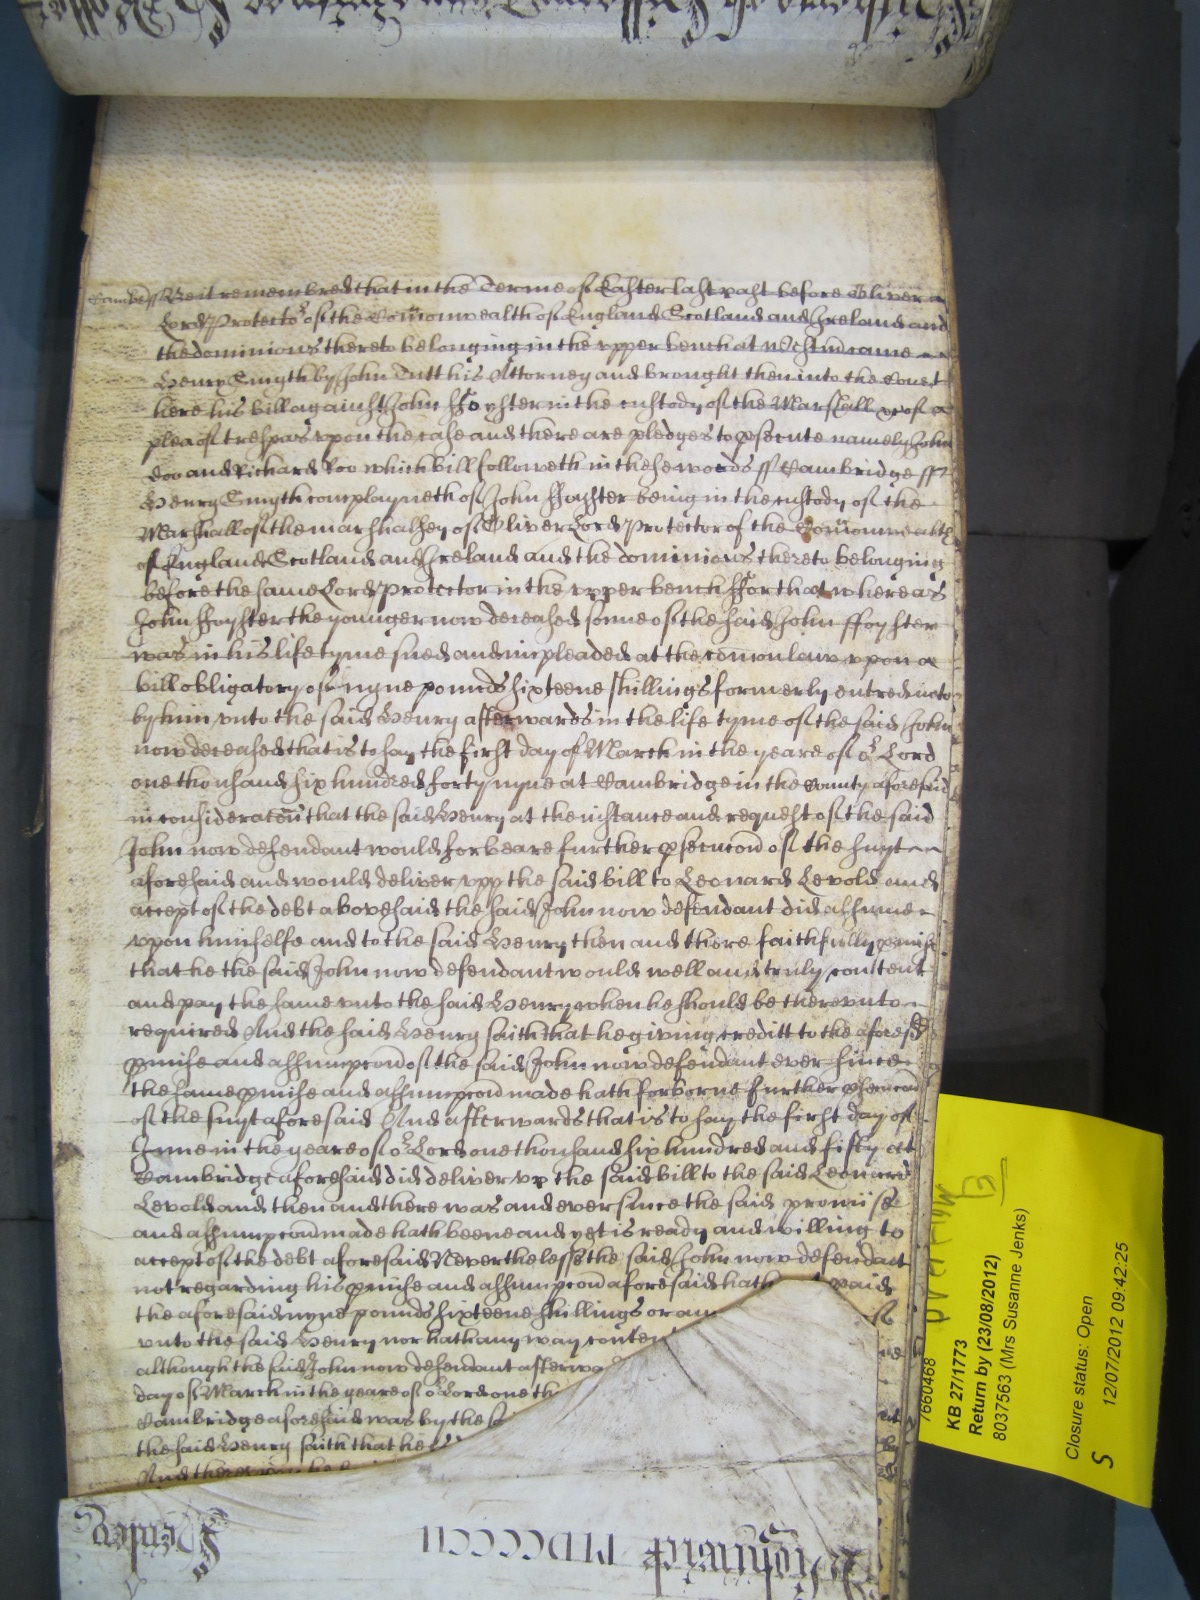 Cambr ss Be it remembred that in the Terme of Easter last past before Oliver
Lord Protector of the Com̄onwealth of England Scotland and Ireland and
the dominions thereto belonging in the upper bench at Westm̄ came
Henry Smyth by John Tutt his Attorney and brought then into the Court
here his bill against John ffoyster in the custody of the Marshall &c of a
plea of trespas upon the case and there are pledges to psecute namely John
Doo and Richard Roo which bill followeth in these words ss Cambridge ss
Henry Smyth complayneth of John ffoyster being in the custody of the
Marshall of the marshalsey of Oliver Lord Protector of the Com̄onwealth
of England Scotland and Ireland and the dominions thereto belonging
before the same Lord Protector in the upper bench ffor that whereas
John ffoyster the younger now deceased sonne of the said John ffoyster
was in his life tyme sued and impleaded at the com̄on law upon a
bill obligatory of nyne pounds sixteene shillings formerly entred into
by him unto the said Henry afterwards in the life tyme of the said John
now deceased that is to say the first day of March in the yeare of or Lord
one thousand six hundred forty nyne at Cambridge in the County aforesaid
in consideracōn that the said Henry at the instance and request of the said
John now defendant would forbeare further psecucōn of the suyt
aforesaid and would deliver upp the said bill to Leonard Levold and
accept of the debt abovesaid the said John now defendant did assume
upon himselfe and to the said Henry then and there faithfully pmise
that he the said John now defendant would well and truly content
and pay the same unto the said Henry when he should be thereunto
required And the said Henry saith that he giving creditt to the aforesd
pmise and assumpcōn of the said John now defendant ever since
the same pmise and assumpcōn made hath forborne further psecucōn
of the suyt aforesaid And afterwards that is to say the first day of
June in the yeare of or Lord one thousand six hundred and fifty att
Cambridge aforesaid did deliver up the said bill to the said Leonard
Levold and then and there was and ever since the said promise
and assumpcōn made hath beene and yet is ready and willing to
accept of the debt aforesaid Neverthelesse the said John now defendant
not regarding his pmise and assumpcōn aforesaid hath paid
the aforesaid nyne pounds sixteene shillings or
unto the said Henry nor hath any way
although the said John now defendant
day of March in the yeare of or Lord one
Cambridge aforesaid was by the
the said Henry saith that he
And
7660468
KB 27/1773
Return by (23/08/2012)
8037563 (Mrs Susanne Jenks)
Closure status: Open
12/07/2012 09:42:25
S